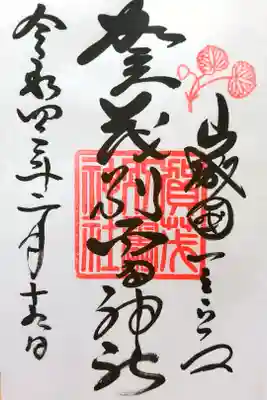 山城國一之宮
賀茂別雷神社
令和四年二月十九日
賀茂別雷神社